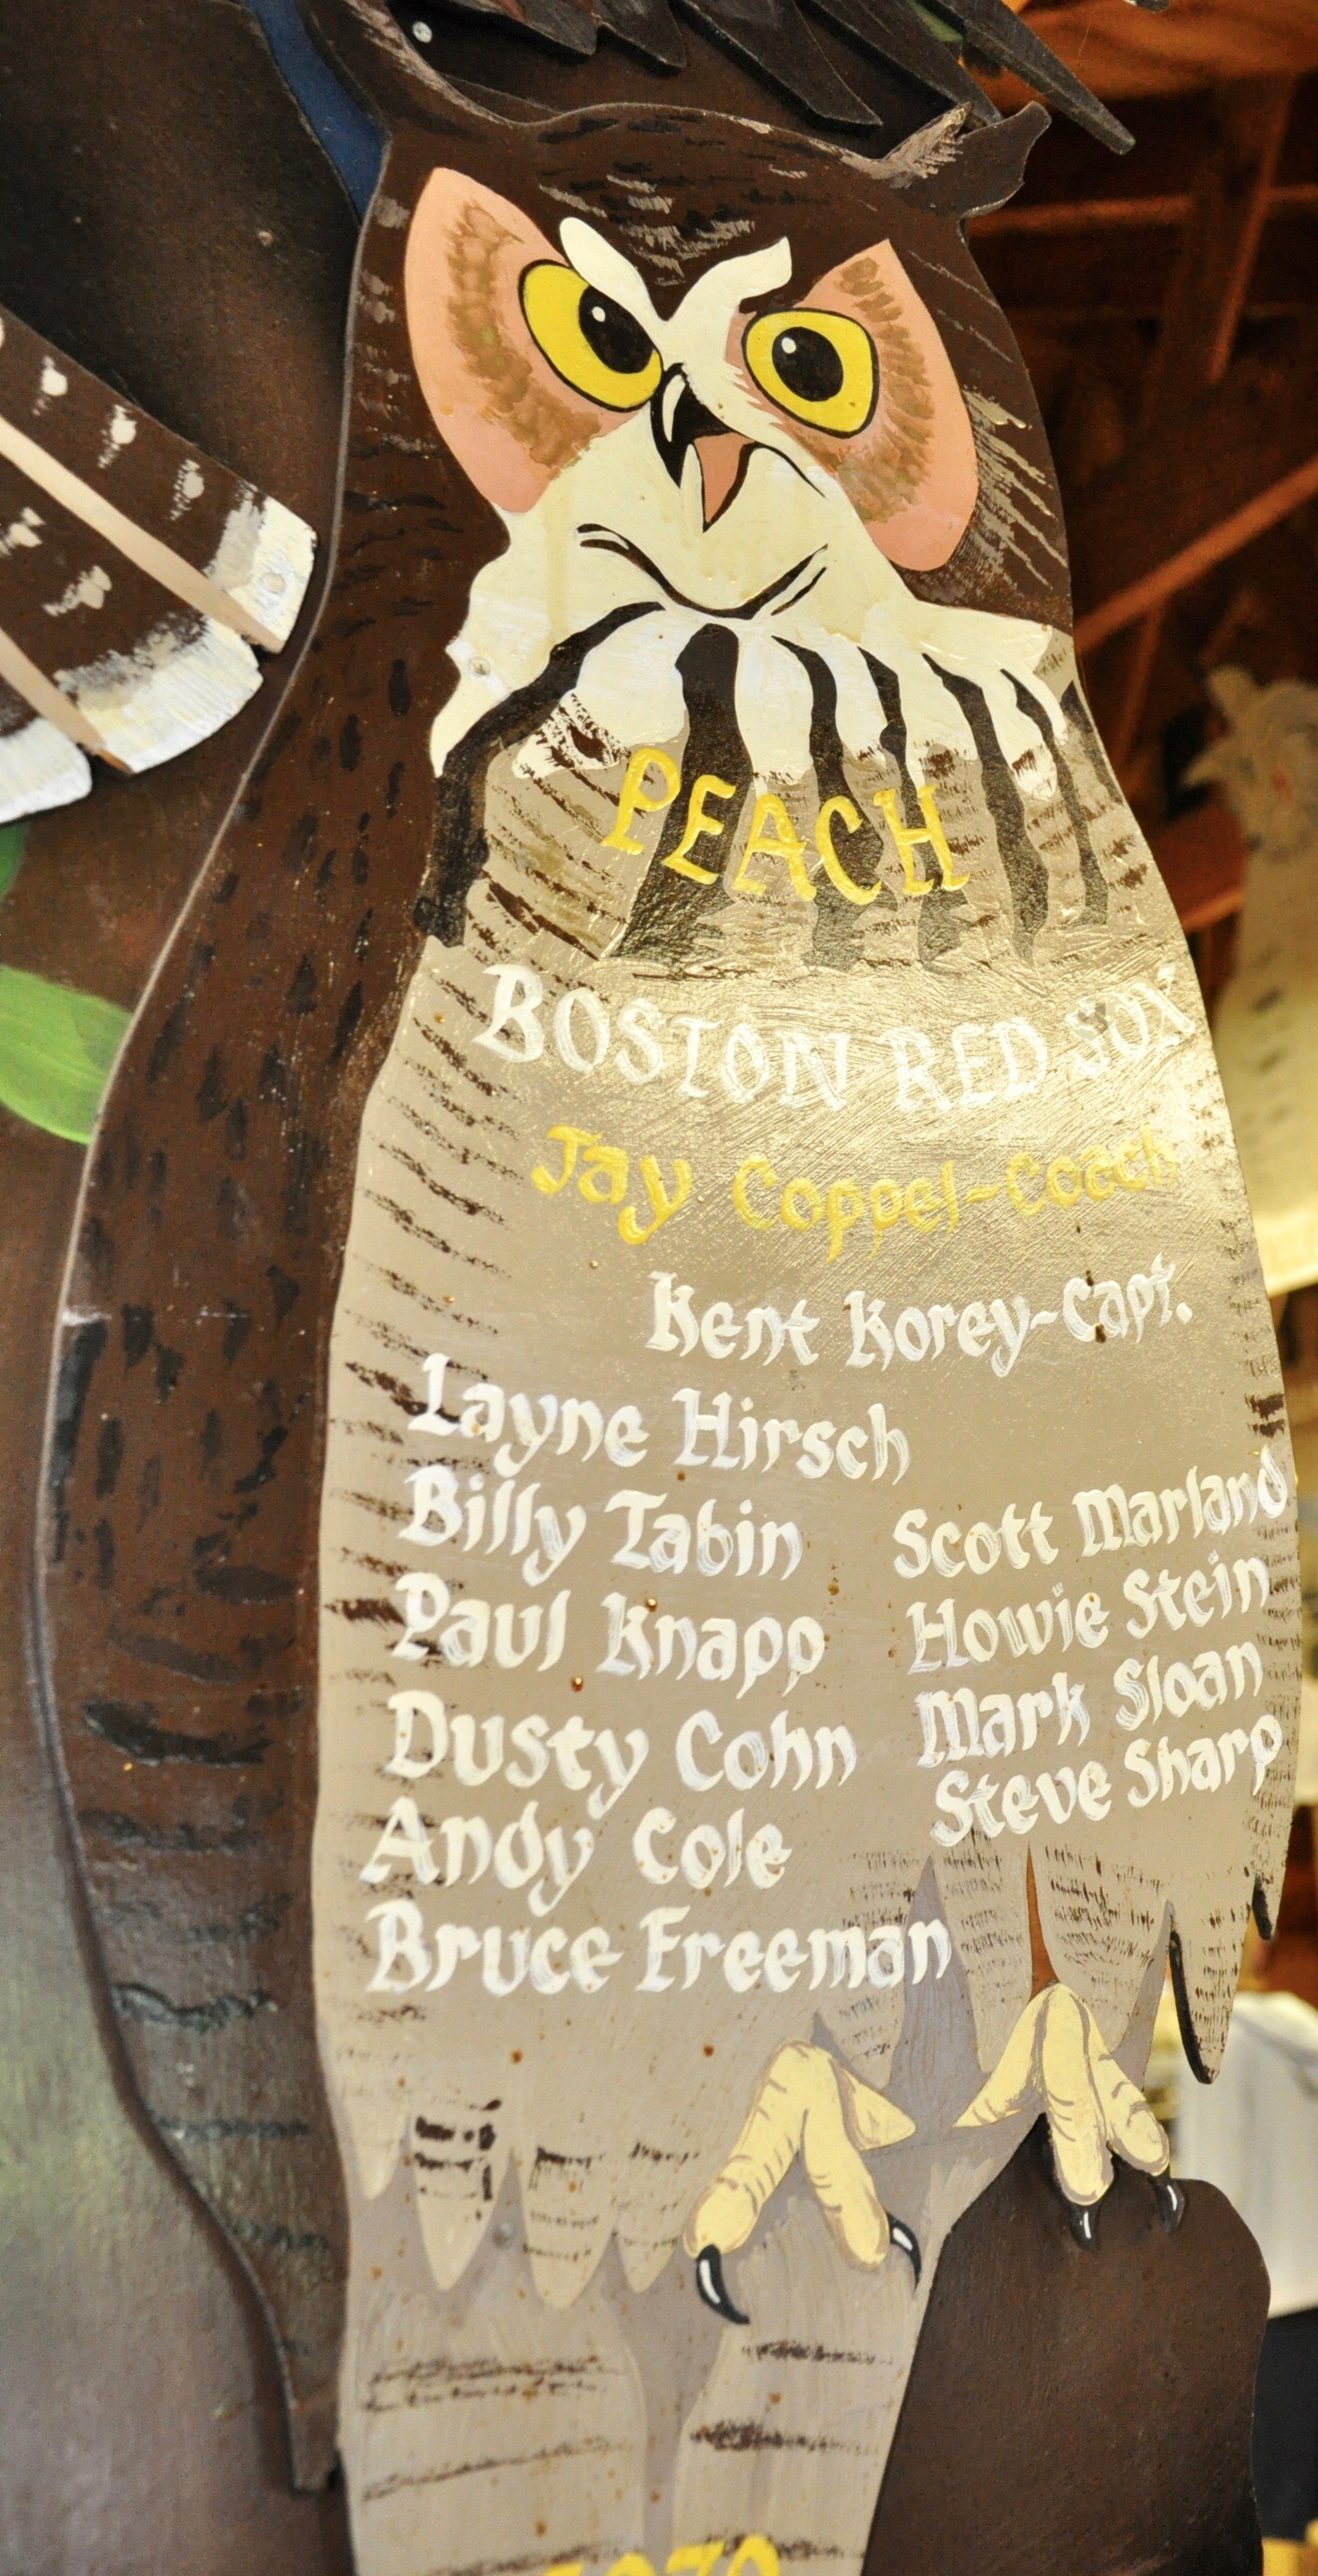 PEACH
BOSTON RED SOX
Jay Coppel-Coach
Kent Korey-Capt.
Layne Hirsch
Billy Tabin
Paul Knapp
Dusty Cohn
Andy Cole
Bruce Freeman
Scott Marland
Howie Stein
Mark Sloan
Steve Sharp